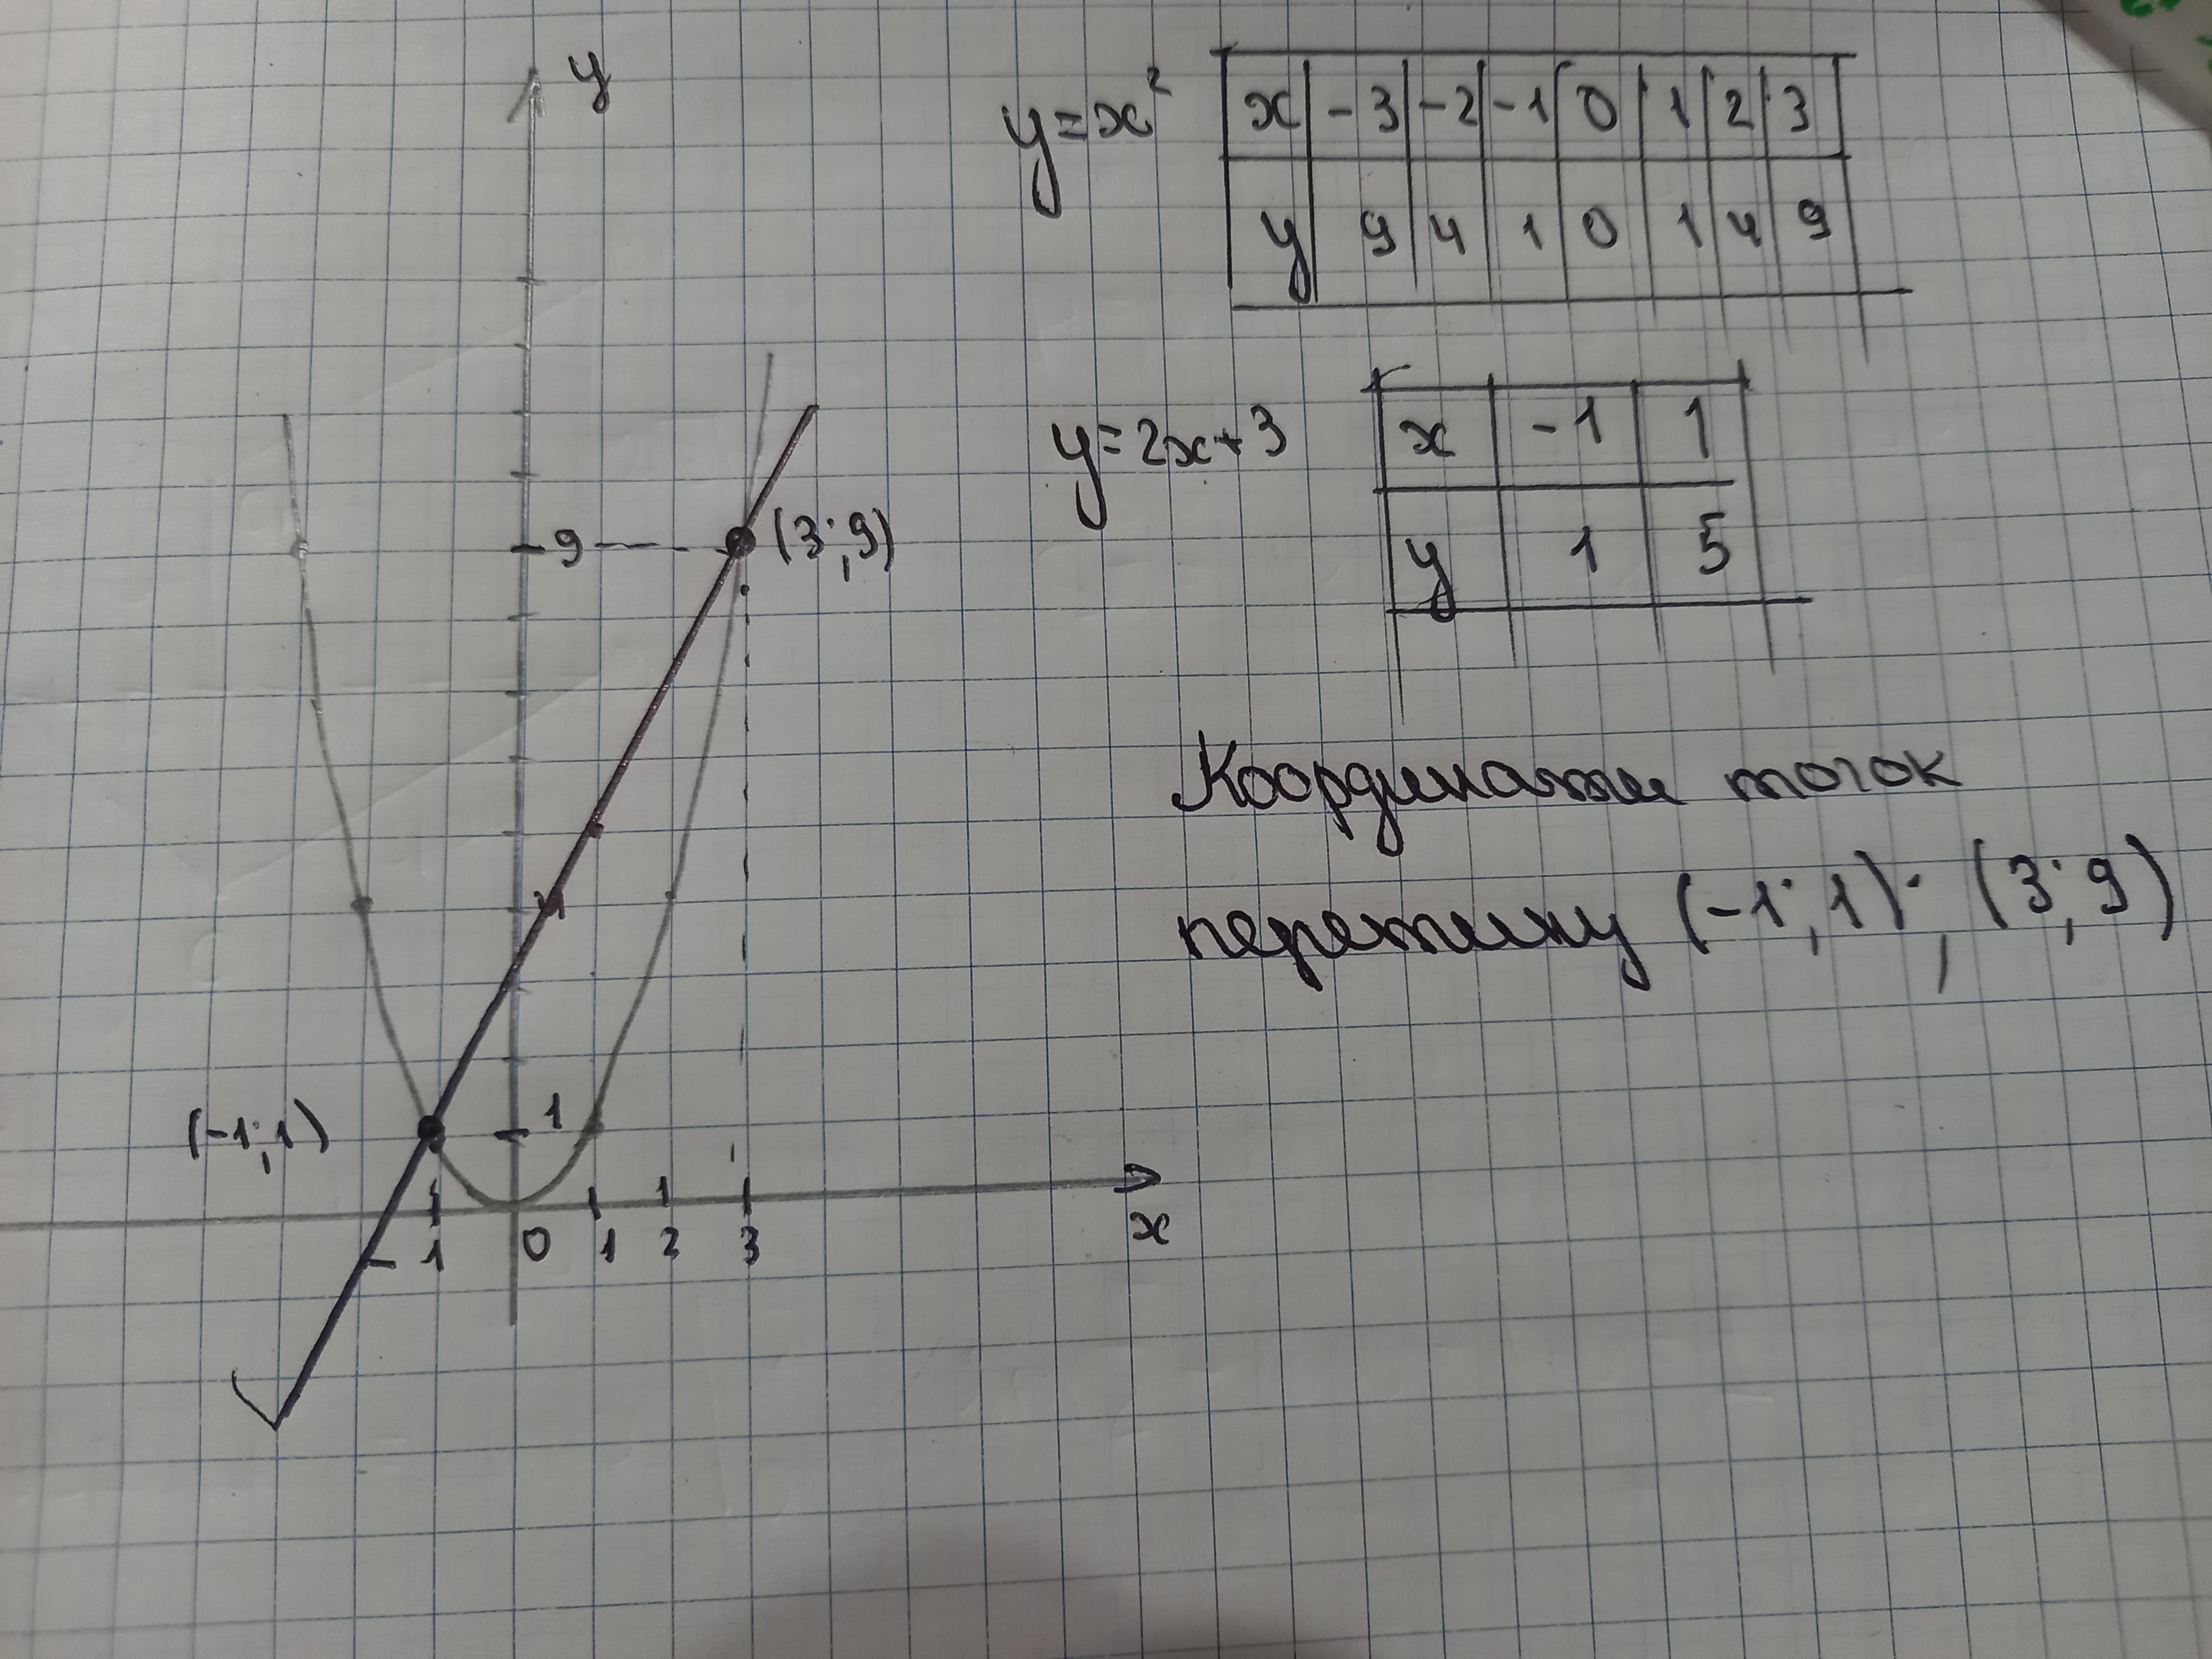 y
y=x²
x -3 -2 -1 0 1 2 3
y 9 4 1 0 1 4 9
y=2x+3
x -1 1
y 1 5
9
(3;9)
Координати точок
перетину (-1;1); (3;9)
(-1;1)
1
-1 0 1 2 3
x